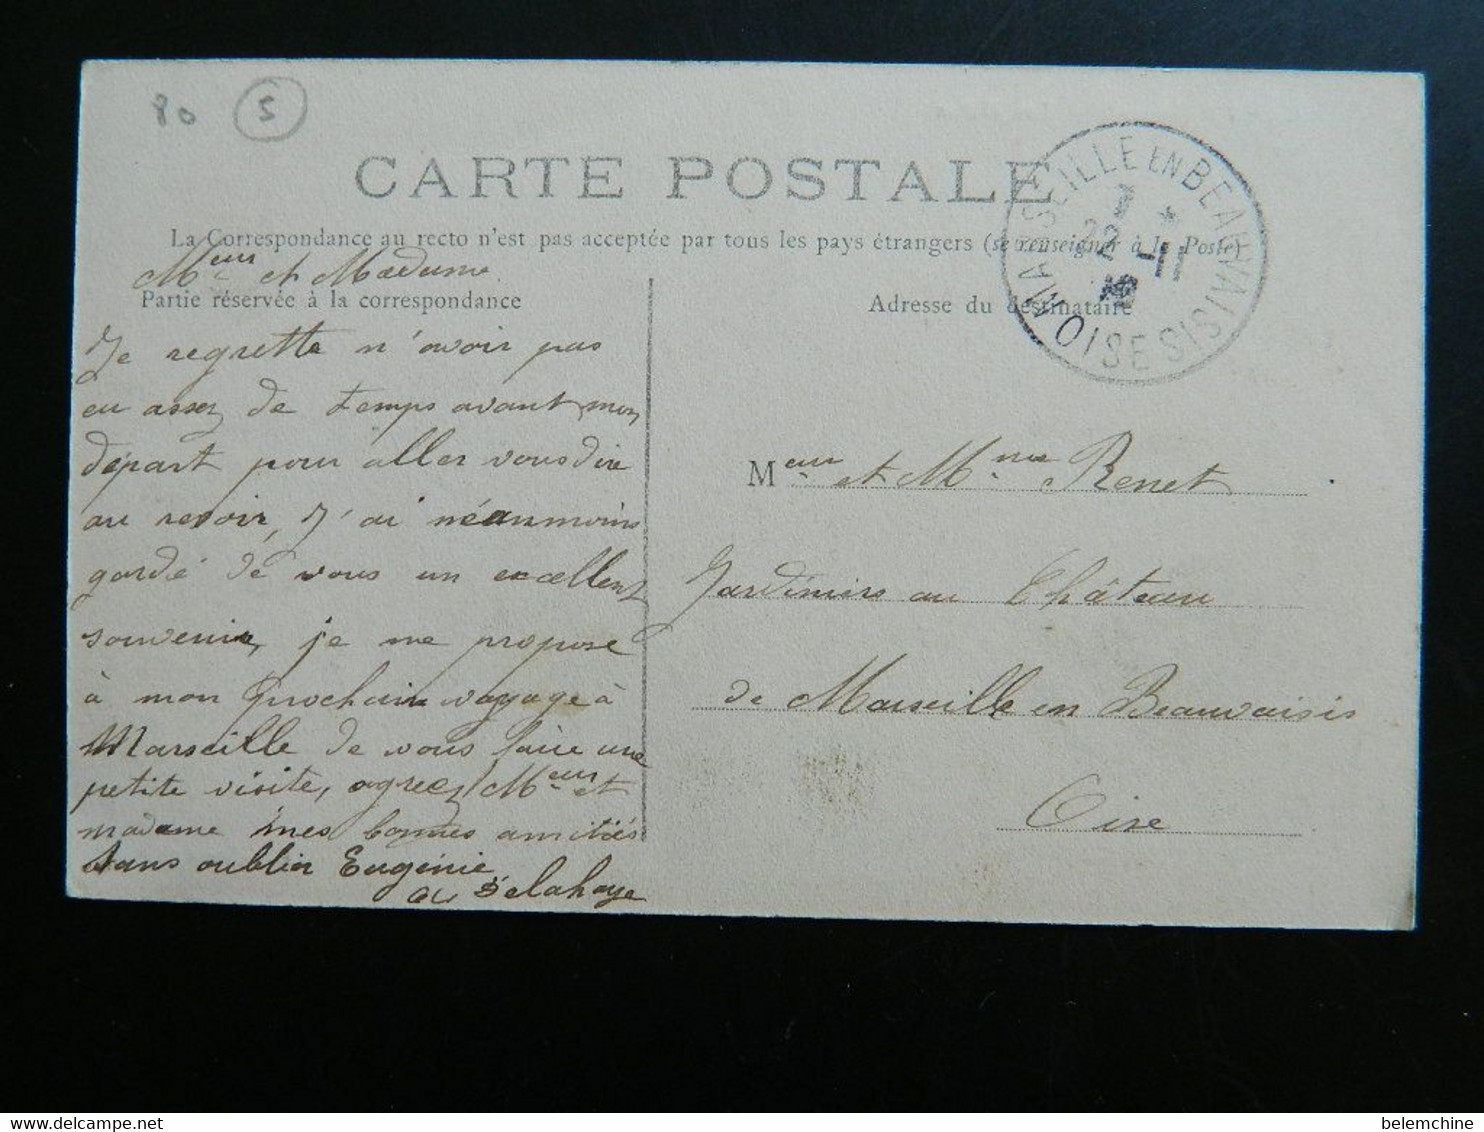 80 5
CARTE POSTALE
La Correspondance au recto n'est pas acceptée par tous les pays étrangers (se renseigner à la Poste)
MARSEILLE EN BEAUVAISIS OISE
22 -11
Partie réservée à la correspondance
Adresse du destinataire
Meur et Madame
Je regrette n'avoir pas
eu assez de temps avant mon
départ pour aller vous dire
au revoir, J'ai néanmoins
gardé de vous un excellent
souvenir, je me propose
à mon prochain voyage à
Marseille de vous faire une
petite visite, agreez Meur et
madame mes bonnes amitiés
sans oublier Eugénie
A Delahaye
Meur et Mme Renet
Jardiniers au Château
de Marseille en Beauvaisis
Oise
delcampe.net
belemchine